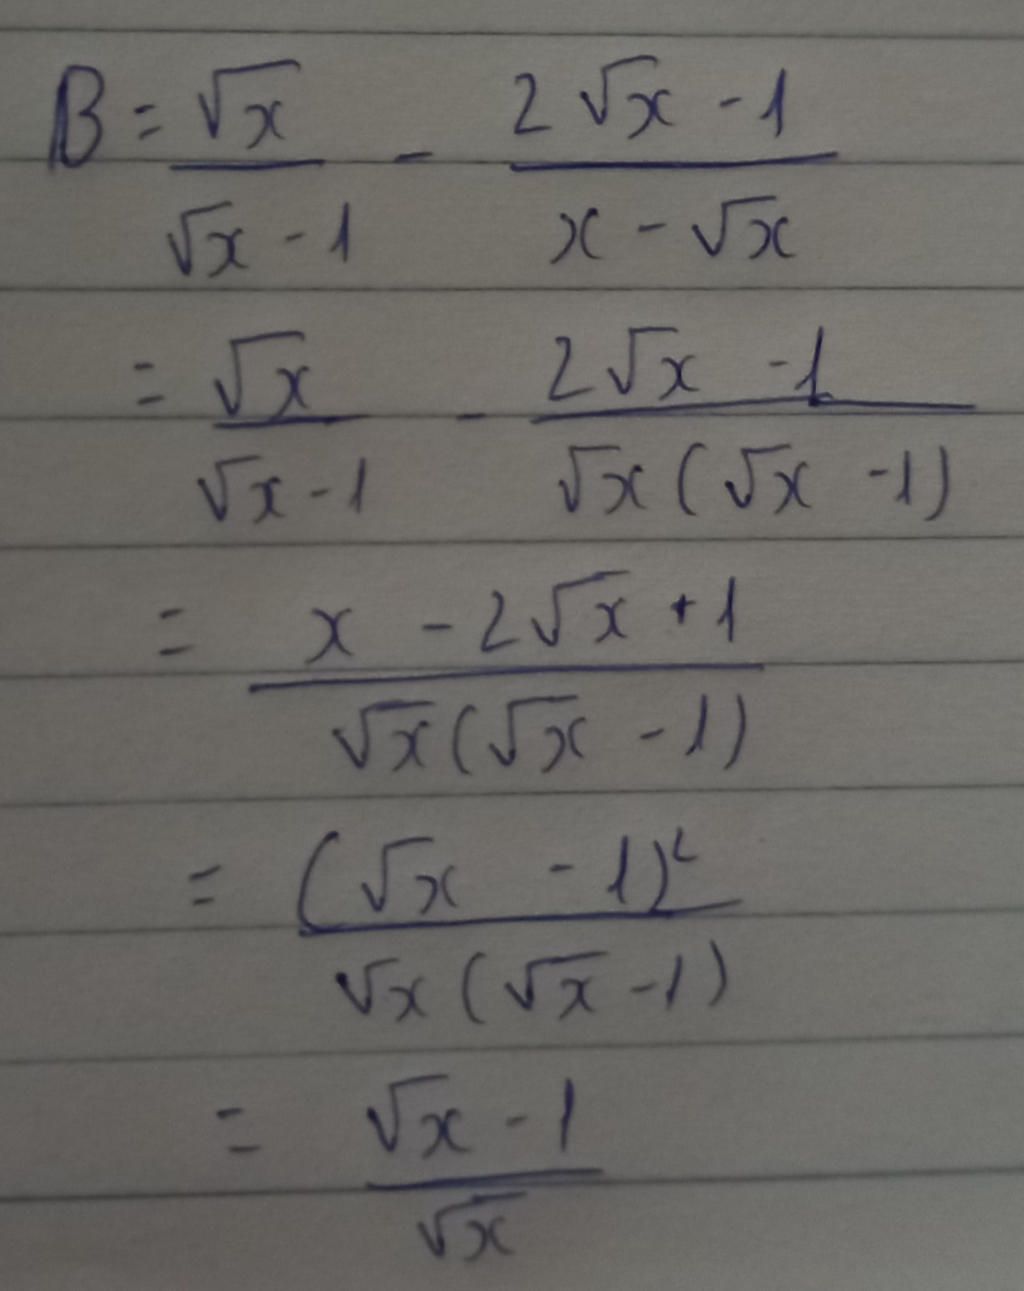 B = √x / (√x - 1) - (2√x - 1) / (x - √x)
= √x / (√x - 1) - (2√x - 1) / (√x(√x - 1))
= (x - 2√x + 1) / (√x(√x - 1))
= (√x - 1)² / (√x(√x - 1))
= (√x - 1) / √x